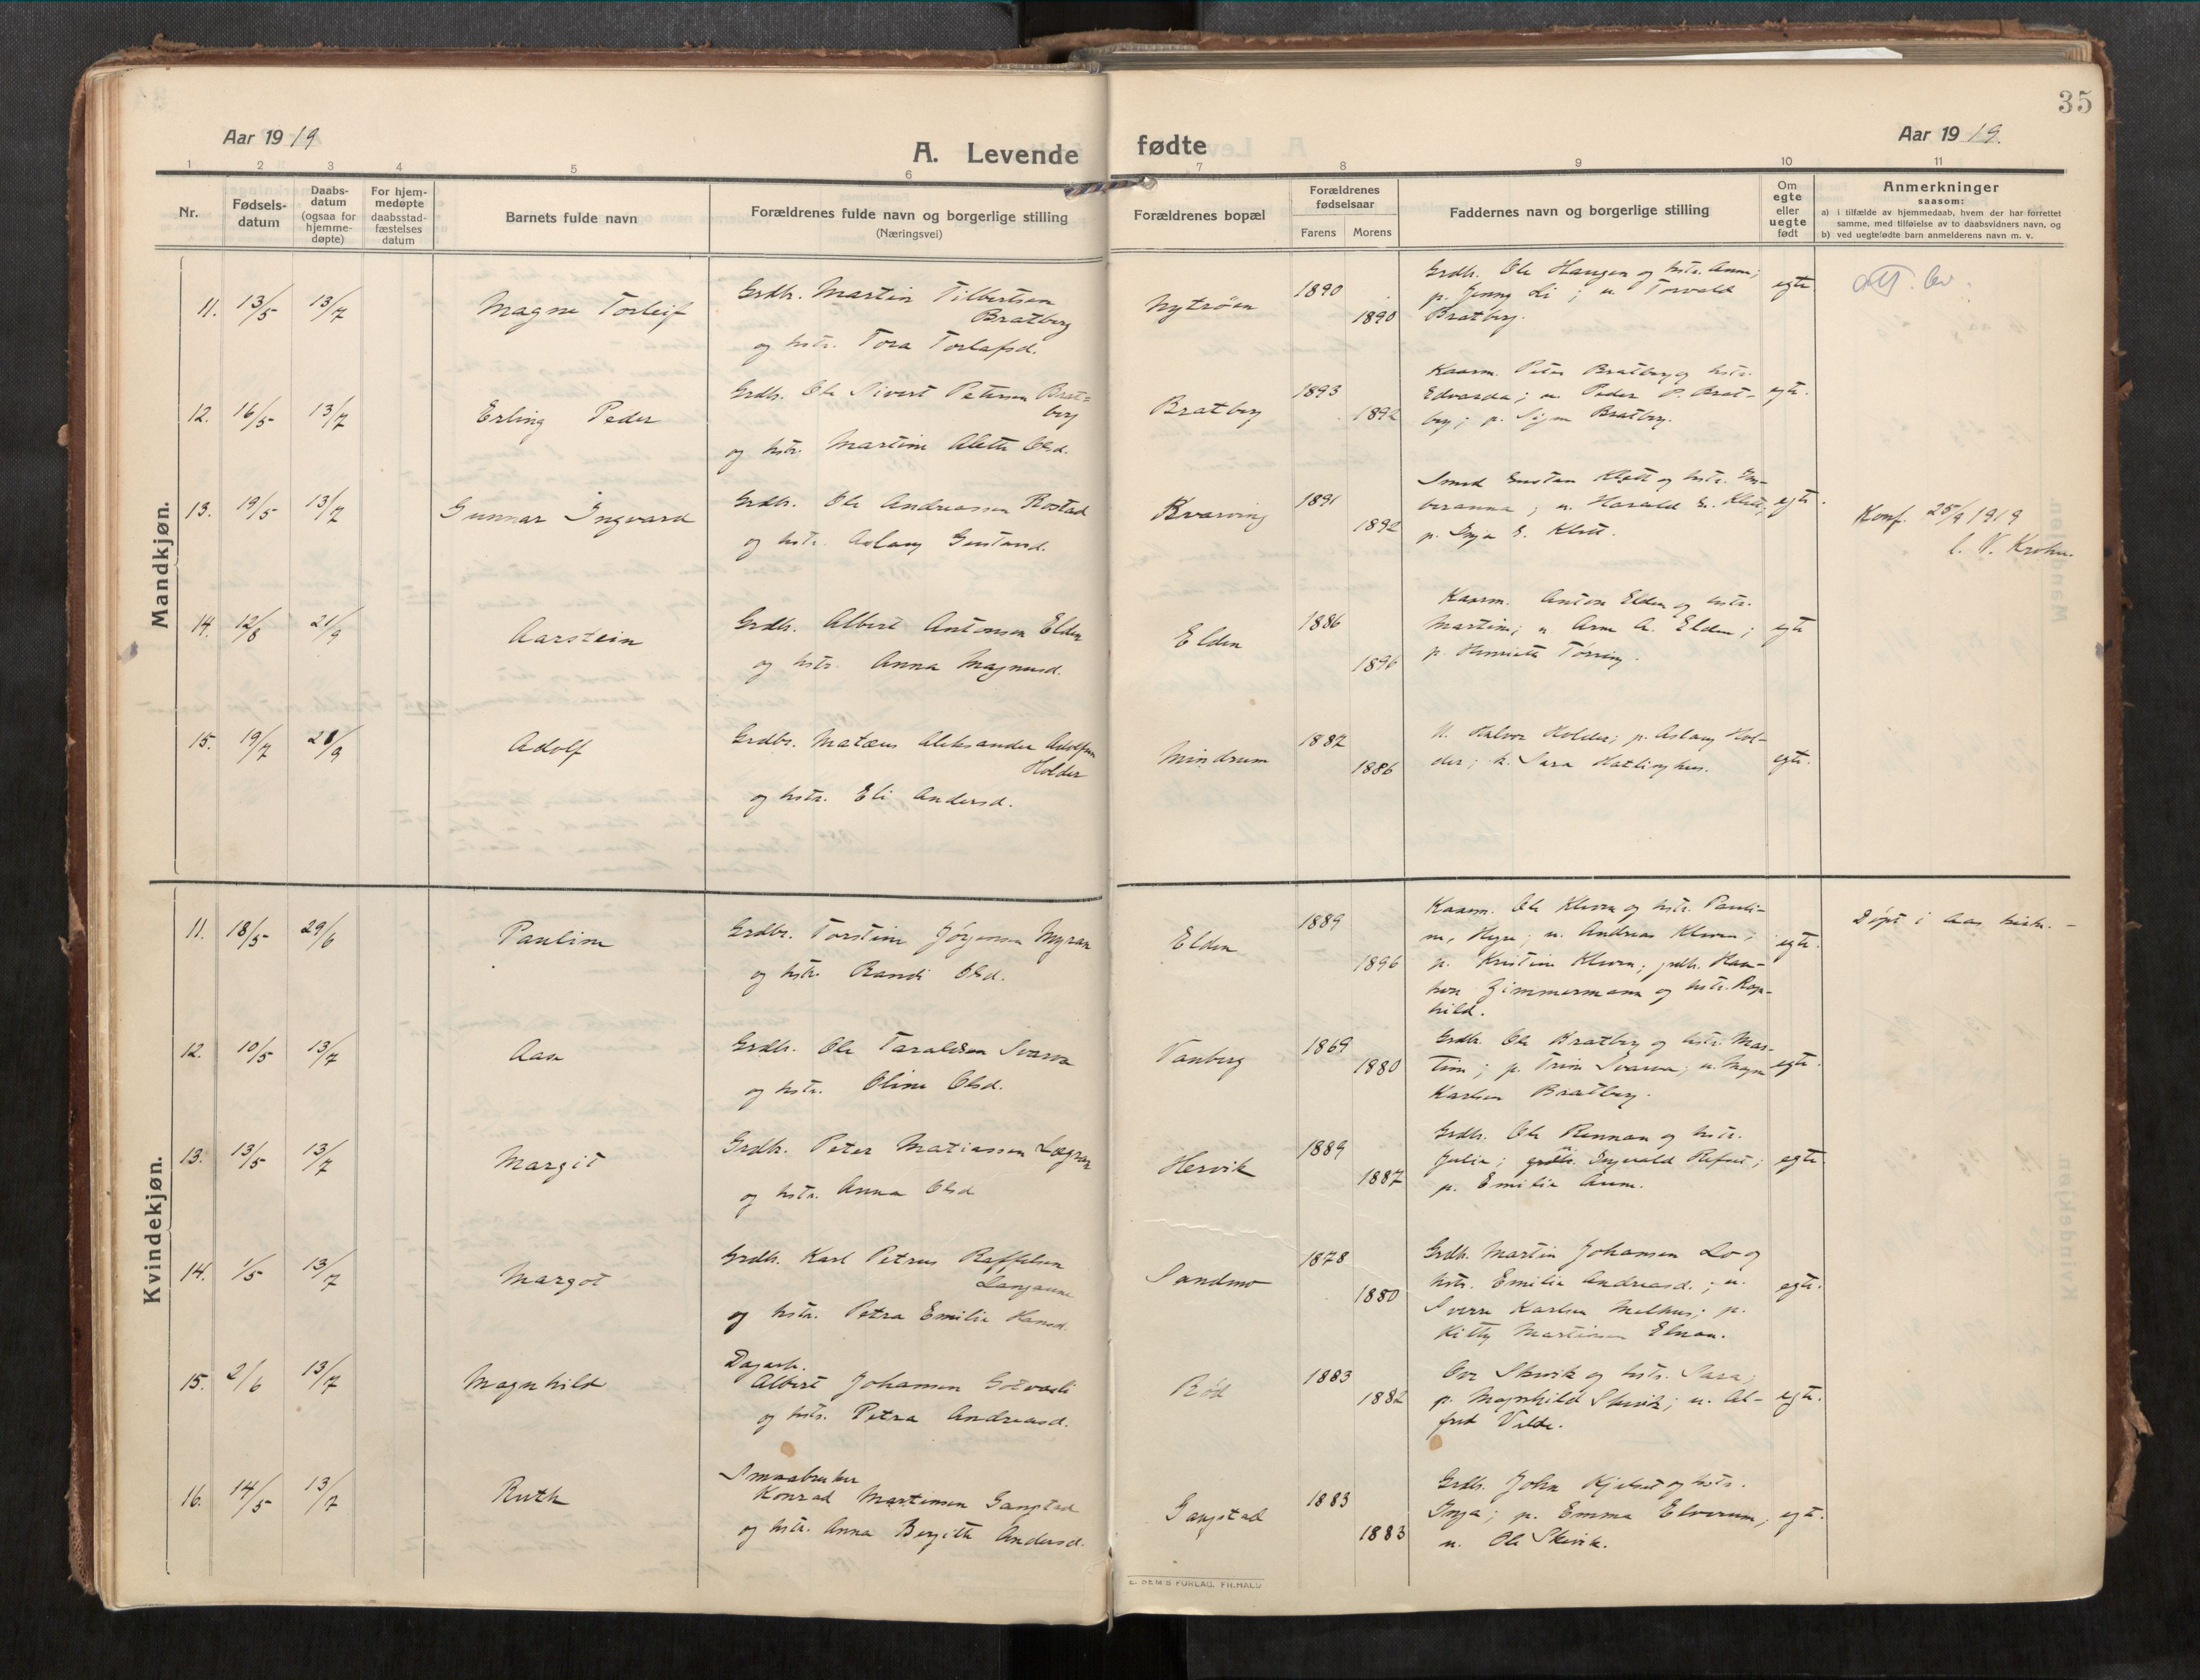 35
Aar 1919
A. Levende fødte
Aar 1919.
1 2 3 4 5 6 7 8 9 10 11
Nr.
Fødsels-
datum
Daabs-
datum
(ogsaa for
hjemme-
døpte)
For hjem-
medøpte
daabsstad-
fæstelses
datum
Barnets fulde navn
Forældrenes fulde navn og borgerlige stilling
(Næringsvei)
Forældrenes bopæl
Forældrenes
fødselsaar
Farens Morens
Faddernes navn og borgerlige stilling
Om
egte
eller
uegte
født
Anmerkninger
saasom:
a) i tilfælde av hjemmedaab, hvem der har forrettet
samme, med tilføielse av to daabsvidners navn, og
b) ved uegtefødte barn anmelderens navn m. v.
Mandkjøn.
11. 13/5 13/7 Magne Torleif
Grdbr. Martin Tilbertsen
Bratberg
og hstr. Tora Torlafsd.
Nytrøen 1890 1890
Grdbr. Ole Haugen og hstr. Anna;
p. Jenny Li; u. Torvald
Bratberg.
egte.
12. 16/5 13/7 Erling Peder
Grdbr. Ole Sivert Petersen Brat=
berg
og hstr. Martine Alette Olsd.
Bratberg 1893 1892
Kaarm. Peter Bratberg og hstr.
Edvarda; u. Peder P. Brat-
berg; p. Signe Bratberg.
egte.
13. 19/5 13/7 Gunnar Ingvard
Grdbr. Ole Andreassen Rostad
og hstr. Aslaug Gustavsd.
Kvarving 1891 1892
Smed Gustav Klett og hstr.
u. Harald G. Klett;
p. Inga G. Klett.
egte.
Konf. 25/9 1919
l. N. Krohn.
14. 12/8 21/9 Aarstein
Grdbr. Albert Antonsen Elden
og hstr. Anna Magnusd.
Elden 1886 1896
Kaarm. Anton Elden og hstr.
Martine; u. Arne A. Elden;
p. Henriette Tørring.
egte
15. 19/7 28/9 Adolf
Grdbr. Matæus Aleksander Adolfsen
Holder
og hstr. Eli Andersd.
Mindrum 1887 1886
U. Halvor Holder; p. Aslaug Hol-
der; k. Sara Hatlinghus.
egte.
Kvindekjøn.
11. 18/5 29/6 Pauline
Grdbr. Torstein Jörgensen Myran
og hstr. Randi Olsd.
Elden 1889 1896
Kaarm. Ole Kleven og hstr. Pauli-
ne, u. Andreas Kleven;
p. Kristine Kleven; grdbr.
Zimmermann og hstr. Rag-
hild.
egte.
Döpt i Aas kirke.
12. 10/5 13/7 Aase
Grdbr. Ole Taraldsen Svarva
og hstr. Oline Olsd.
Vanberg 1869 1880
Grdbr. Ole Bratberg og hstr. Mar-
tine; p. Trine Svarva; u.
Karlsen Bratberg.
egte.
13. 13/5 13/7 Margit
Grdbr. Peter Matiassen
og hstr. Anna Olsd
Hervik 1889 1887
Grdbr. Ole Rennan og hstr.
Julie; Ingvald;
p. Emilie Aune.
egte.
14. 1/5 13/7 Margot
Grdbr. Karl Petrus Raffelsen
Langaune
og hstr. Petra Emilie Hansd.
Sandmo 1878 1880
Grdbr. Martin Johansen Lo og
hstr. Emilie Andreasd.; u.
Sverre Karlsen Melhus; p.
Kitty Martinsen Elnan.
egte.
15. 2/6 13/7 Magnhild
Dagarb.
Albert Johansen Gotvasli
og hstr. Petra Andreasd.
Röd 1883 1882
Ove Skevik og hstr. Sara;
p. Magnhild Skevik; u. Al-
fred Velde.
egte.
16. 14/5 13/7 Ruth
Smaabruker
Konrad Martinsen Gangstad
og hstr. Anna Bergitte Andersd.
Gangstad 1883 1883
Grdbr. John Kjelset og hstr.
Inga; p. Emma Elverum;
u. Ole Skevik.
egte.
E. SEM'S FORLAG, FR.HALD